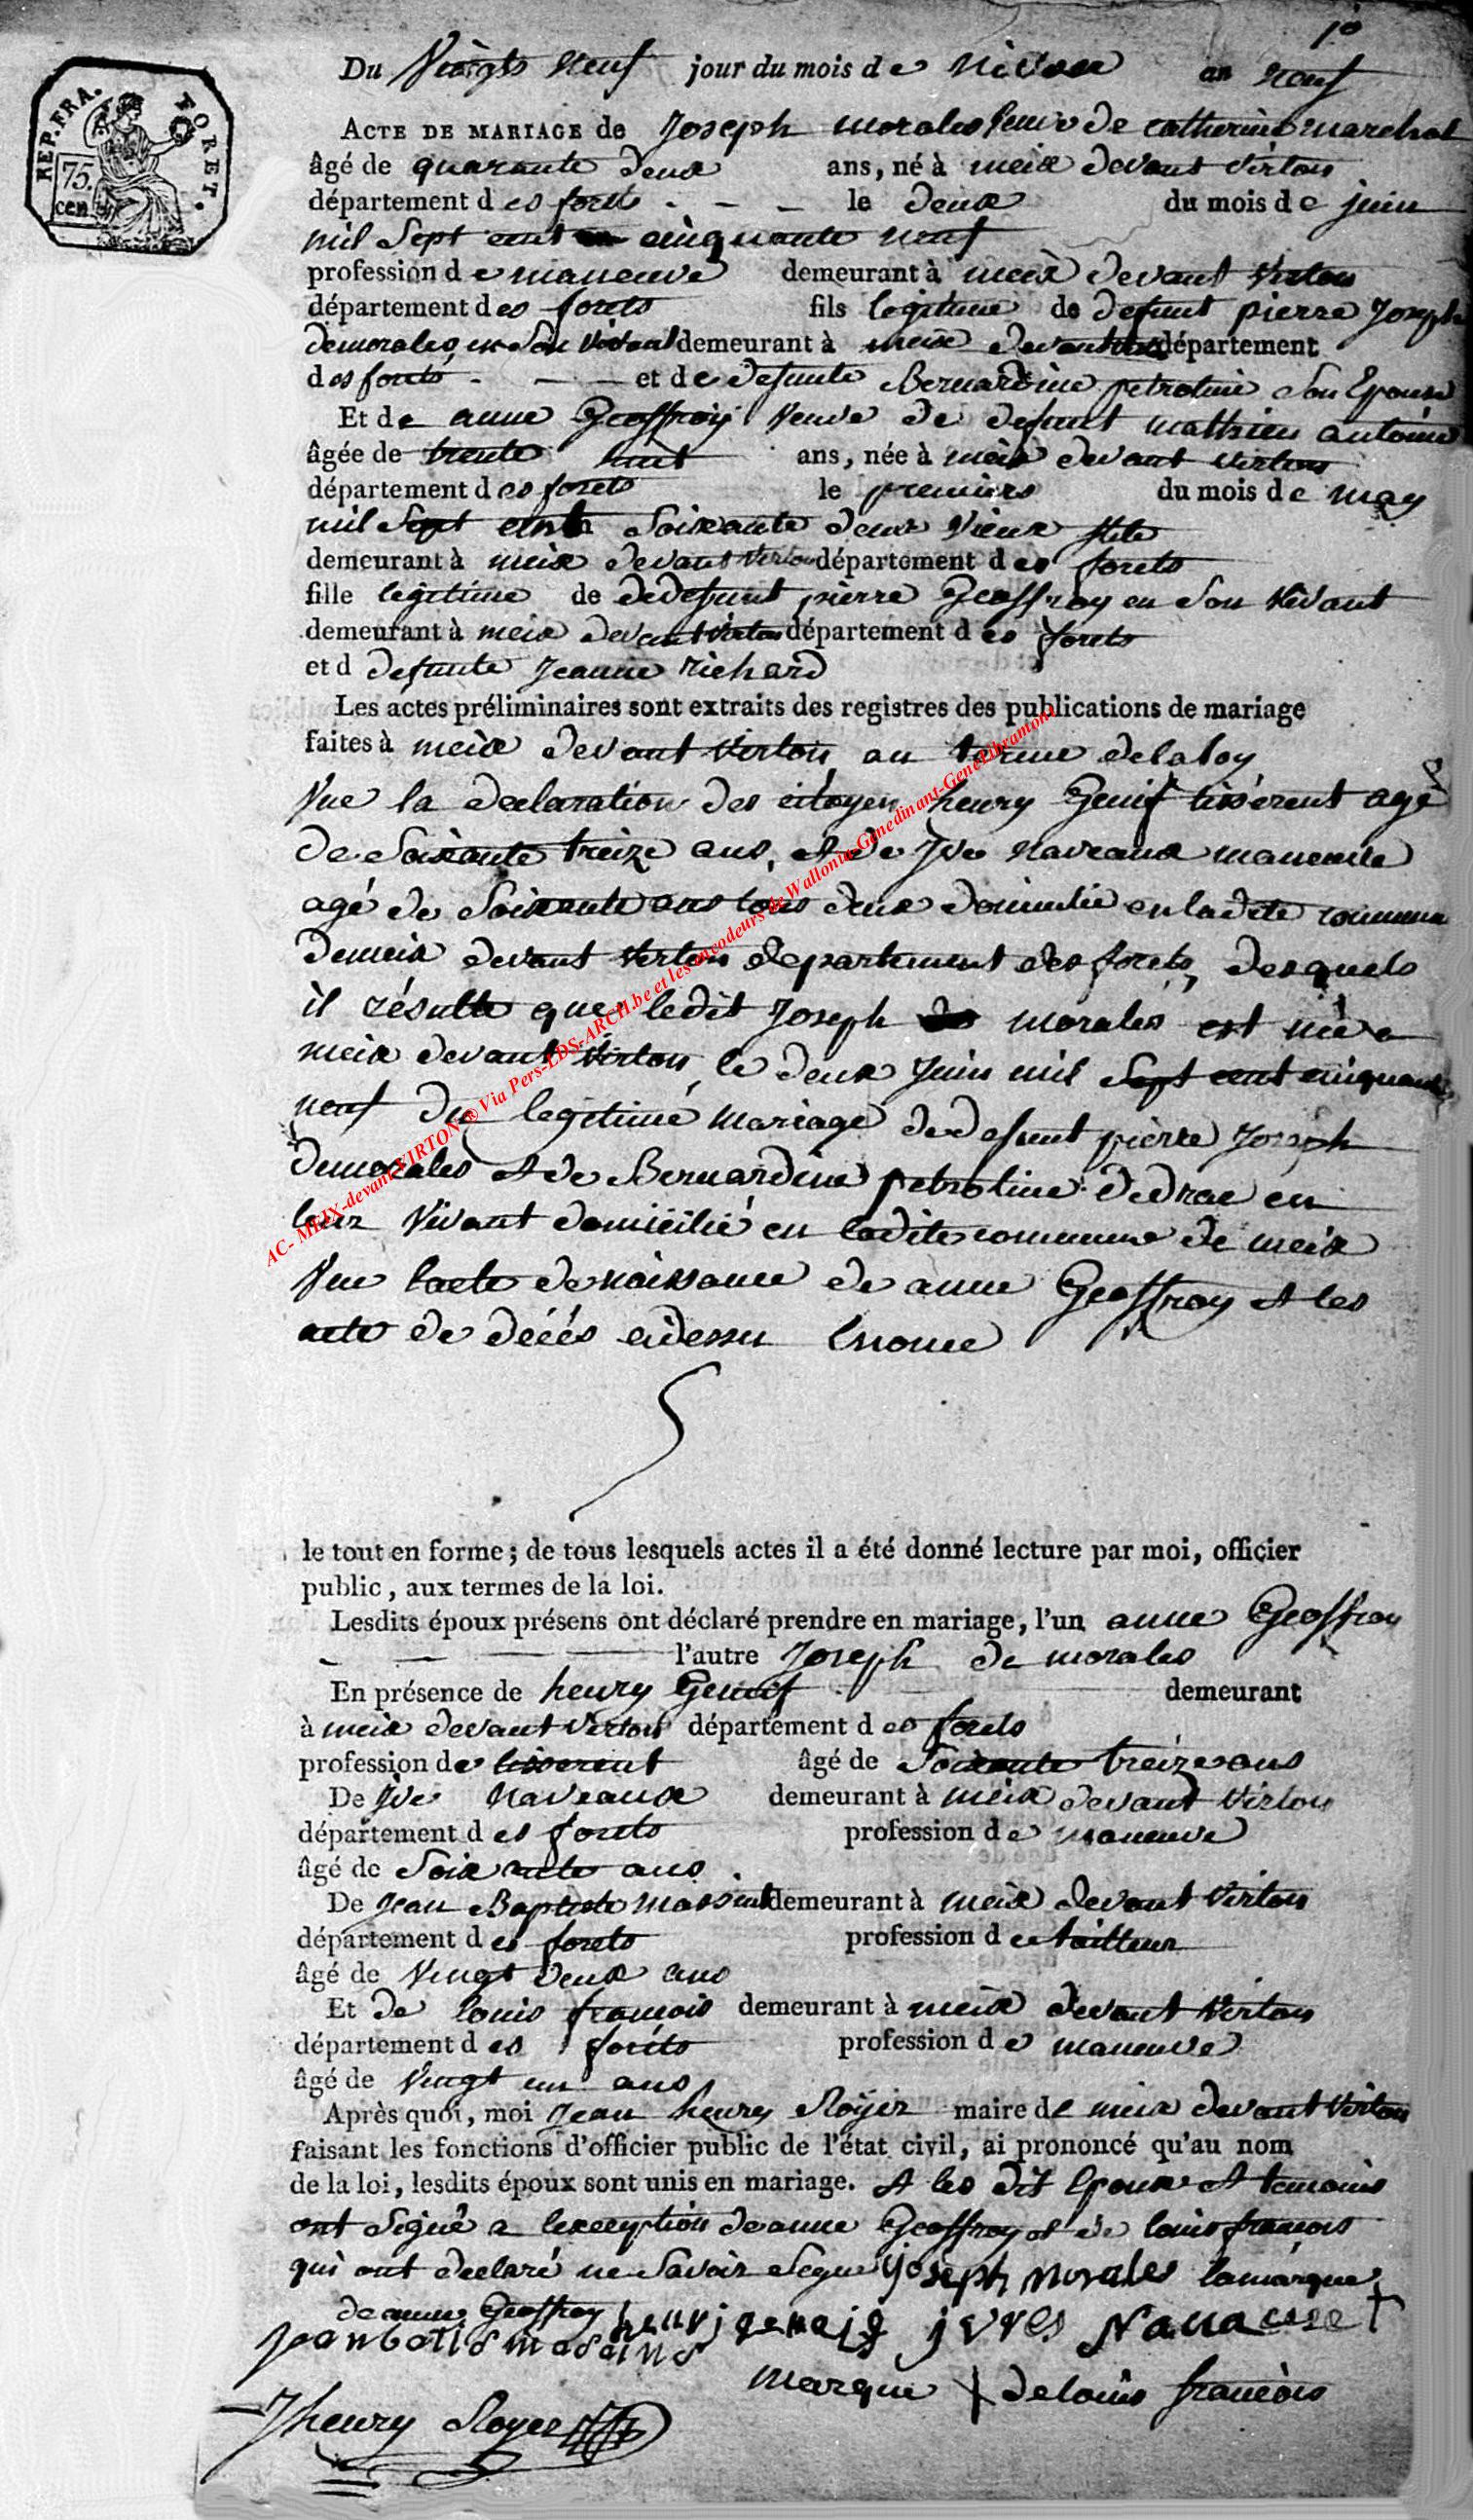 10
REP.FRA.
FORET.
75.
cen.
Du Vingts neuf jour du mois de nivose an neuf
ACTE DE MARIAGE de Joseph morales veuve de catherine marechal
âgé de quarante deux ans, né à meix devant virton
département des forets - - - le deux du mois de juin
mil sept cent cinquante neuf
profession de maneuve demeurant à meix devant virton
département des forets fils legitime de defunt pierre Joseph
demorales en son vivant demeurant à meix devant département
des forets - — — et de defunte Bernardine petroline son Epouse
Et de anne Geoffroy veuve de defunt matthieu antoine
âgée de trente huit ans, née à meix devant virton
département des forets le premiers du mois de may
mil sept cents soixante deux vieux stile
demeurant à meix devant virton département des forets
fille legitime de dedefunt pierre Geoffroy en son vivant
demeurant à meix devant virton département des forets
et d defunte Jeanne richard
Les actes préliminaires sont extraits des registres des publications de mariage
faites à meix devant virton au terme delaloy
Vue la declaration des citoyen henry tisserent agé
de soixante treize ans, et de Jve naveaux maneuve
agé de soixante ans tous deux domicilié en ladite commune
demeix devant virton departement des forets, desquels
il résulte que ledit Joseph morales est née a
meix devant virton le deux Juin mil sept cent cinquante
neuf du legitime mariage dedefunt pierre Joseph
demorales et de Bernardine petroline dedrae en
leur vivant domicilié en ladite commune de meix
Vue lacte denaissance de anne Geoffroy et les
acte de décés cidessu Enonce
le tout en forme; de tous lesquels actes il a été donné lecture par moi, officier
public, aux termes de la loi.
Lesdits époux présens ont déclaré prendre en mariage, l'un anne Geoffroy
l'autre Joseph de morales
En présence de henry demeurant
à meix devant virton département des forets
profession de tisserent âgé de soixante treize ans
De Jve naveaux demeurant à meix devant virton
département des forets profession de maneuve
âgé de soixante ans
De Jean Baptiste demeurant à meix devant virton
département des forets profession de tailleur
âgé de vingt deux ans
Et de louis francois demeurant à meix devant virton
département des forêts profession de maneuve
âgé de vingt un ans
Après quoi, moi Jean henry Royer maire de meix devant virton
faisant les fonctions d'officier public de l'état civil, ai prononcé qu'au nom
de la loi, lesdits époux sont unis en mariage. et les dit Epoux et temoins
ont signé a lexception deanne Geoffroy et de louis francois
qui ont declaré ne savoir signe joseph morales lamarque
deanne Geoffroy henri jvves Navaux
marque delouis francois
Jhenry Royer
AC- MEIX-devant-VIRTON® Via Pers-LDS-ARCH.be et les encodeurs de Wallonia-Genedinant-GeneLibramont